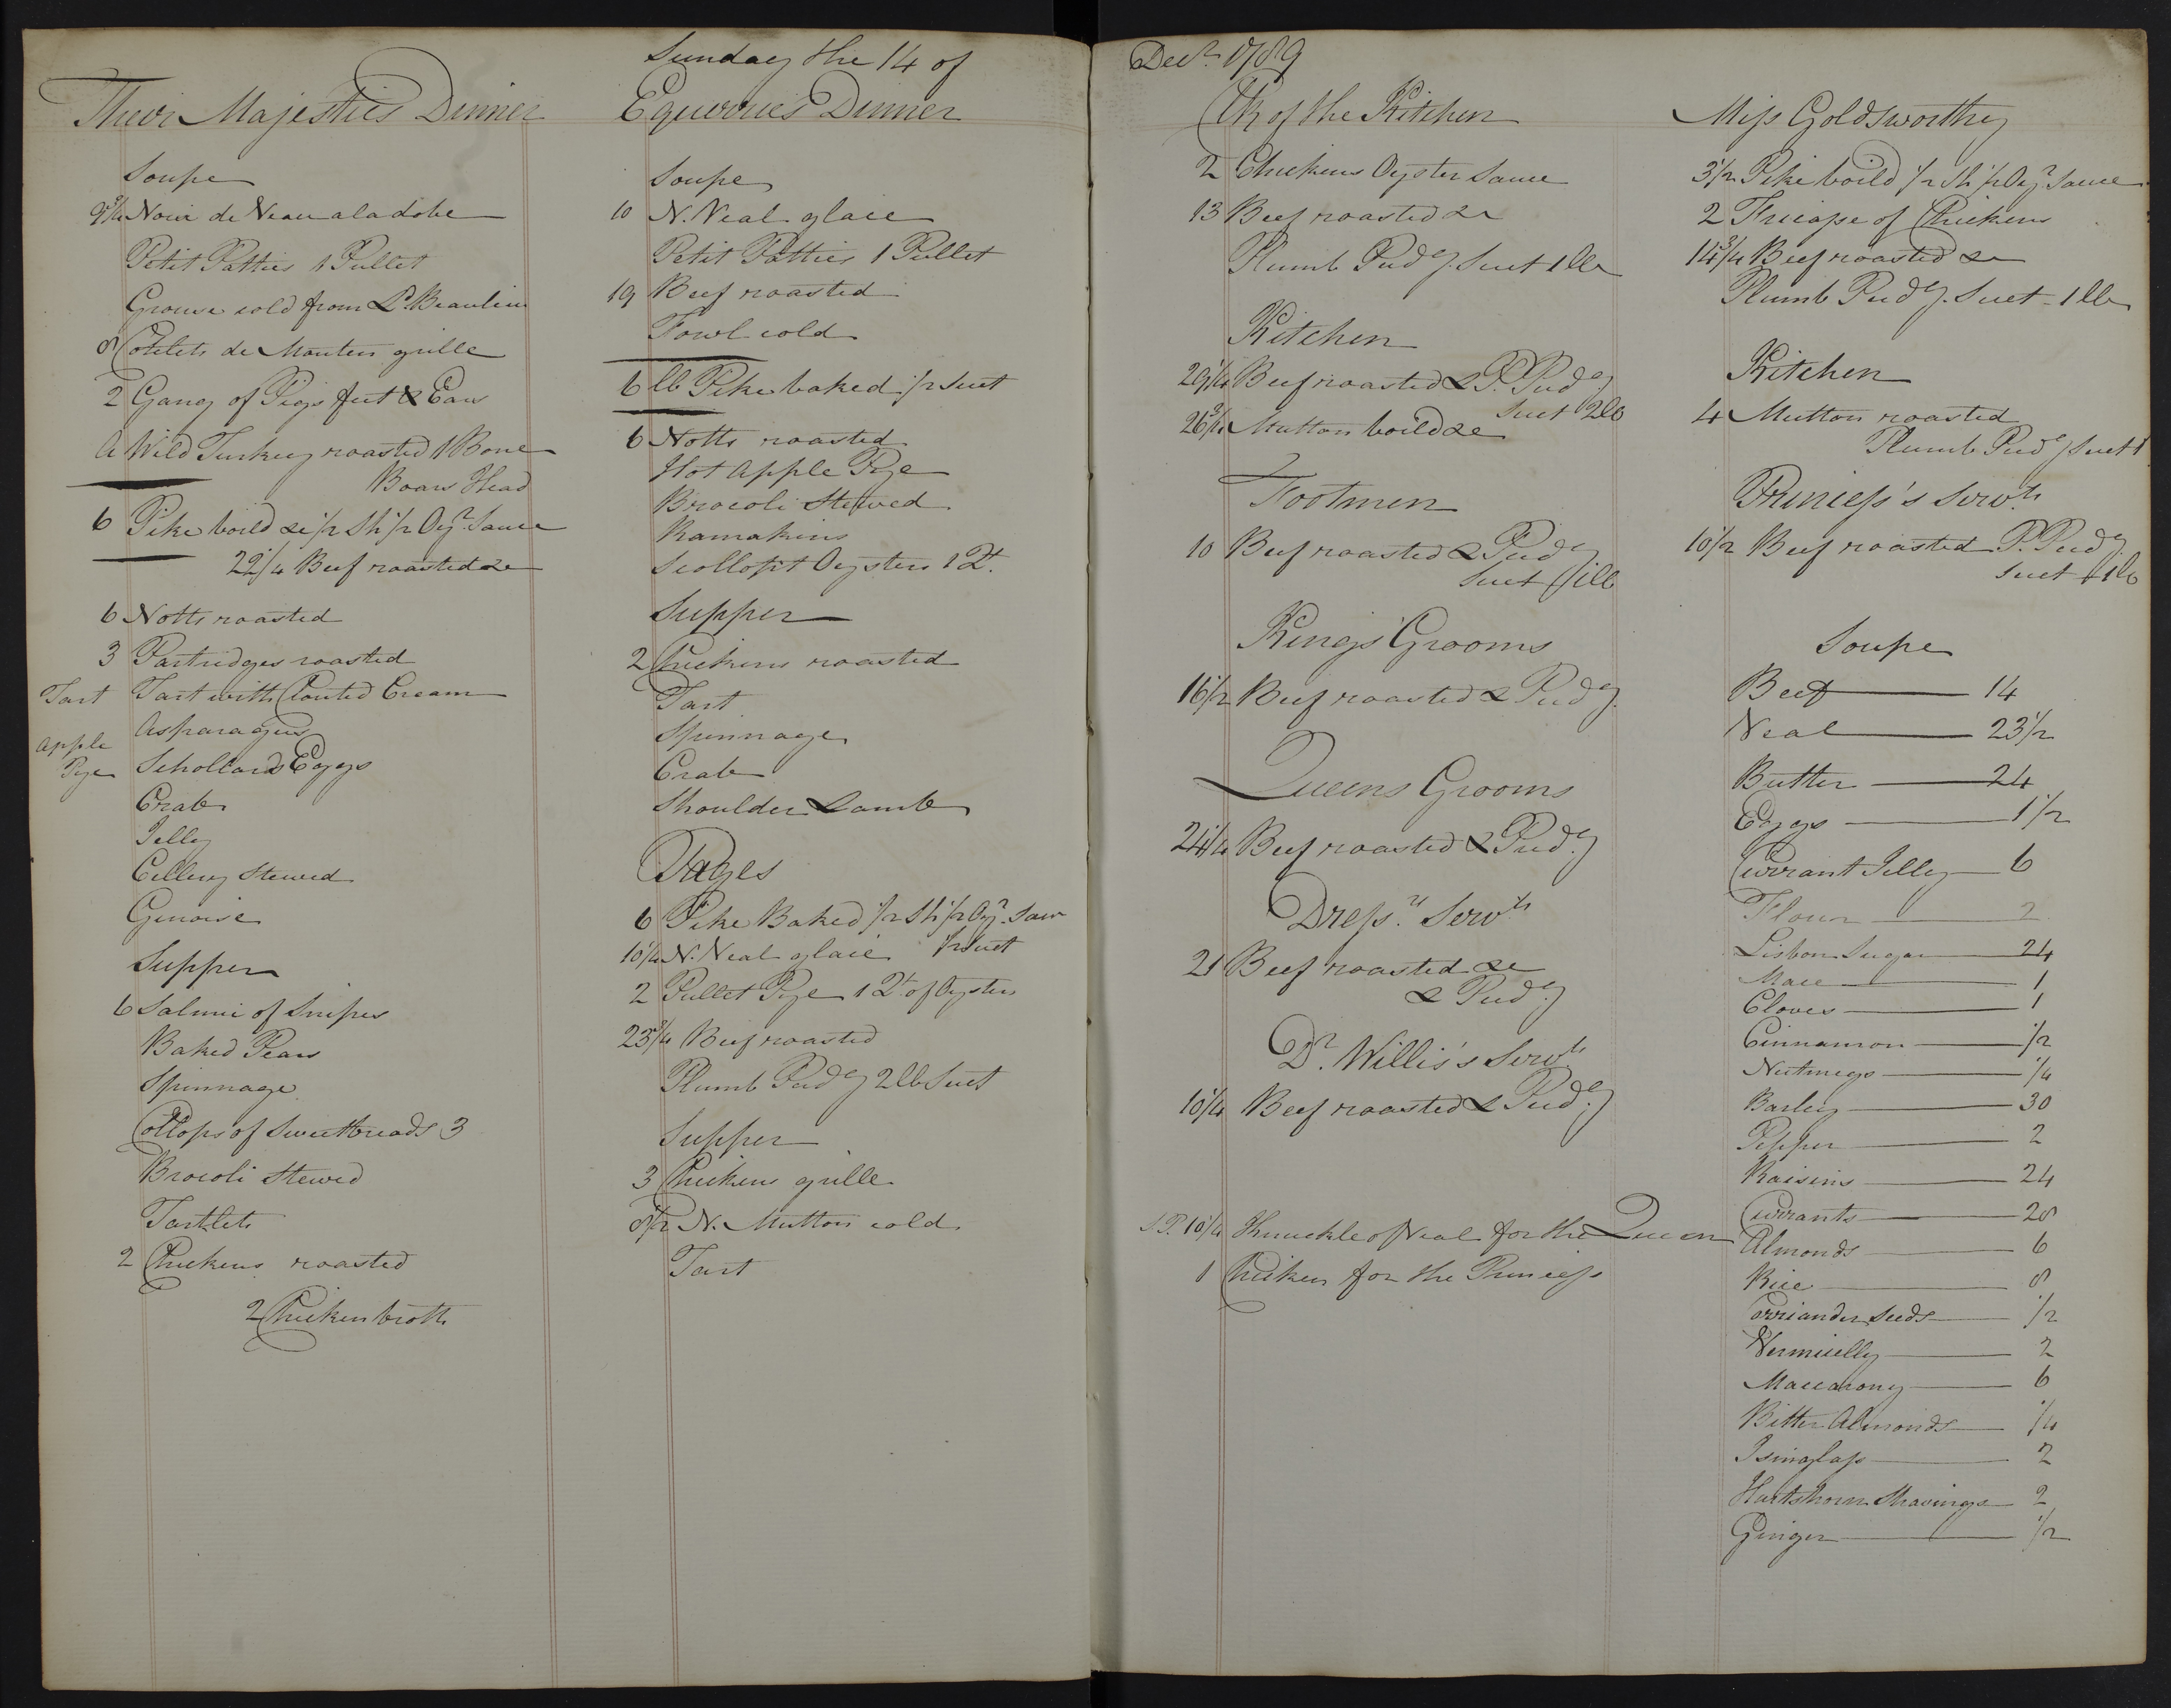 Sunday the 14 of
Their Majesties Dinner
Soupe
9 3/4 Noix de Veau a la dobe
Petit Patties 1 Pullet
Grouse cold from Ld. Beaulieu
8 Cotelets de Mouton grille
2 Gang of Pigs feet & Ears
A Wild Turkey roasted 1 Bone
Boars Head
6 Pike boild &c 1/2 Sh 1/2 Oyr. Sauce
22 1/4 Beef roasted &c
6 Notts roasted
3 Partridges roasted
Tart Tart with Clouted Cream
Asparagus
Apple
Pye Schollards Eggs
Crab
Jelly
Cellery Stewed
Genoise
Supper
6 Salmi of Snipes
Baked Pears
Spinnage
Collops of Sweetbreads 3
Brocoli Stewed
Tartlets
2 Chickens roasted
2 Chicken broth
Equerries Dinner
Soupe
10 N. Veal glace
Petit Patties 1 Pullet
19 Beef roasted
Fowl cold
6 lb Pike baked 1/2 Suet
6 Notts roasted
Hot Apple Pye
Brocoli Stewed
Ramakins
Scollopt Oysters 1 Qt.
Supper
2 Chickens roasted
Tart
Spinnage
Crab
Shoulder Lamb
Pages
6 Pike Baked 1/2 Sh 1/2 Oyr. Sauce
10 1/4 N. Veal glace 1/2 Suet
2 Pullet Pye 1 Qt of Oysters
23 3/4 Beef roasted
Plumb Pudg 2 lb Suet
Supper
3 Chickens grille
8 1/2 N. Mutton cold
Tart
Decr. 1789
Clk of the Kitchen
2 Chickens Oyster Sauce
13 Beef roasted &c
Plumb Pudg. Suet 1 lb
Kitchen
29 1/4 Beef roasted & P. Pudg
Suet 2 lb
26 3/4 Mutton boild &c
Footmen
10 Beef roasted & Pudg
Suet 1 lb
Kings Grooms
16 1/2 Beef roasted & Pudg.
Queens Grooms
24 1/4 Beef roasted & Pudg.
Dress.rs Servts
21 Beef roasted &c
& Pudg.
Dr. Willis's Servts
10 1/4 Beef roasted & Pudg.
S.P. 10 1/4 Knuckle of Veal for the Queen
1 Chicken for the Princess
Miss Goldsworthy
3 1/2 Pike boild 1/2 Sh 1/2 Oyr. Sauce
2 Fricasse of Chickens
14 3/4 Beef roasted &c
Plumb Pudg. Suet - 1 lb
Kitchen
4 Mutton roasted
Plumb Pudg Suet 1
Princess's Servts.
10 1/2 Beef roasted P. Pudg.
Suet 1 lb
Soupe
Beef 14
Veal 23 1/2
Butter 24
Eggs 1 1/2
Currant Jelly 6
Flour 2
Lisbon Sugar 24
Mace 1
Cloves 1
Cinnamon 1/2
Nutmegs 1/4
Barley 30
Pepper 2
Raisins 24
Currants 28
Almonds 6
Rice 8
Corriander Seeds 1/2
Vermicelly 2
Maccarony 6
Bitter Almonds 1/4
Isinglass 2
Hartshorn Shavings 2
Ginger 1/2